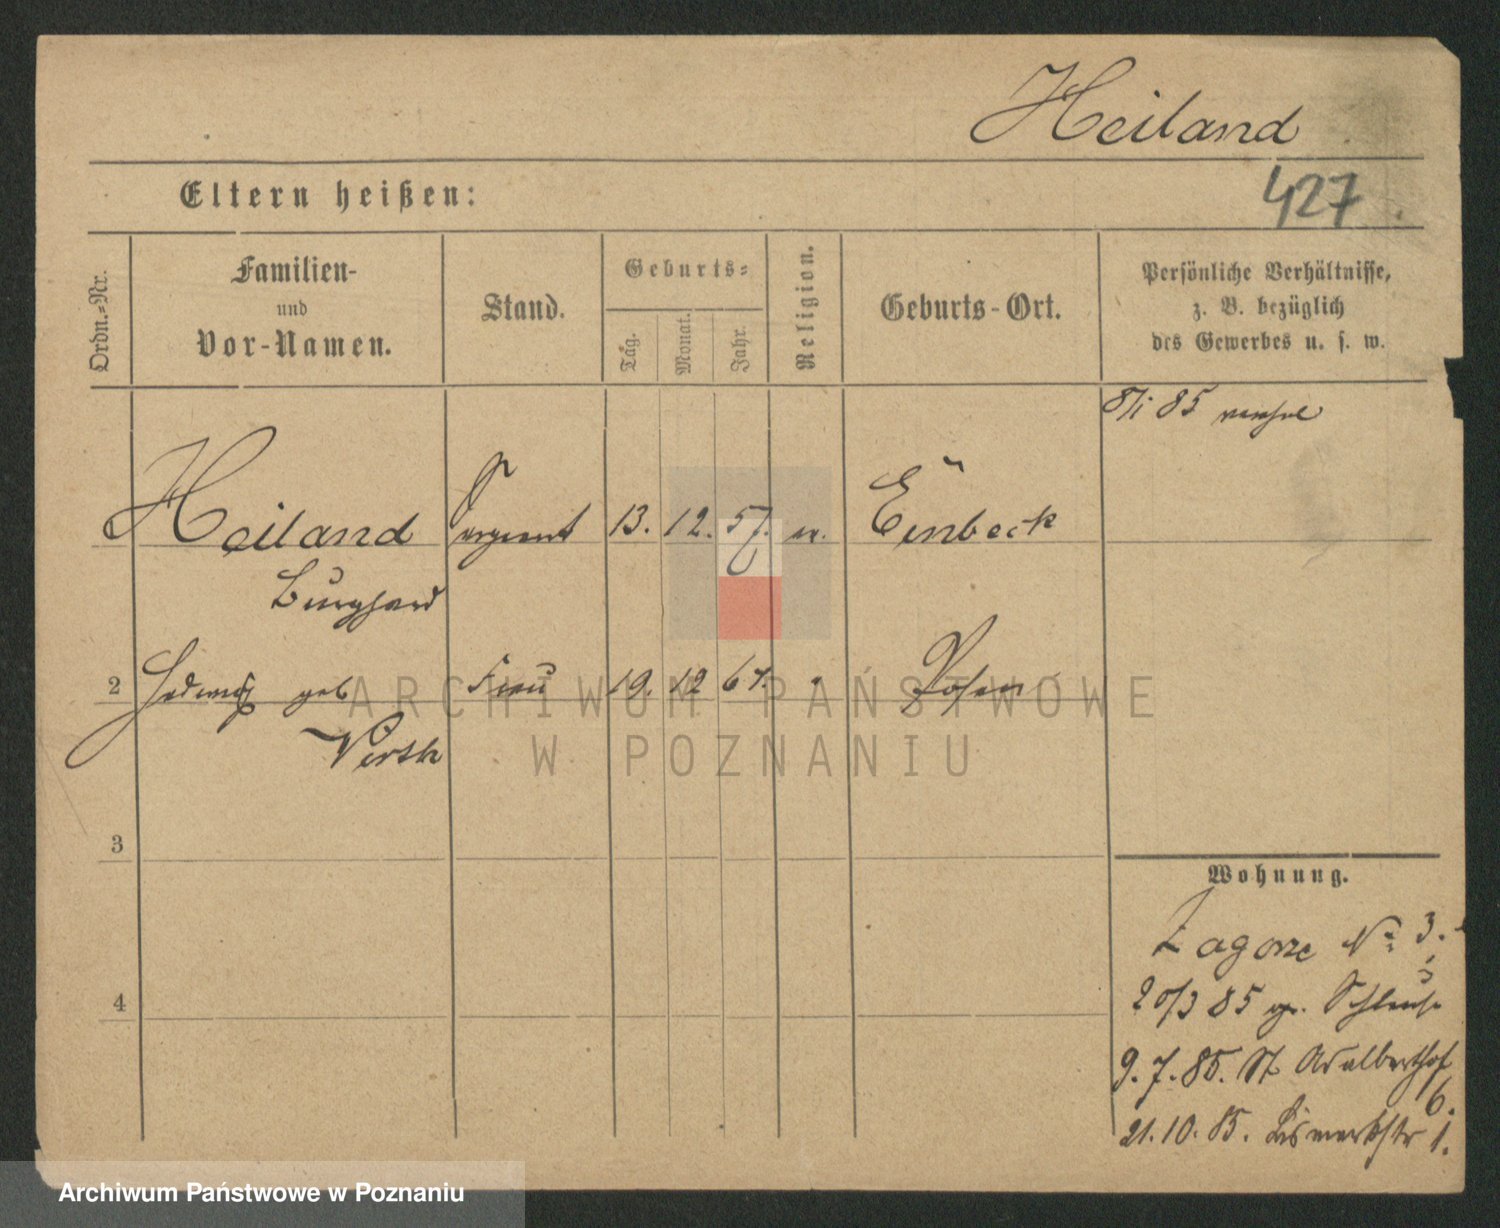 Heiland
Eltern heißen:
427
Ordn.-Nr.
Familien-
und
Vor-Namen.
Stand.
Geburts-
Tag.
Monat.
Jahr.
Religion.
Geburts-Ort.
Persönliche Verhältnisse,
z. B. bezüglich
des Gewerbes u. s. w.
8/1 85
Heiland Sergeant 13. 12. 57. ev. Einbeck
Burghard
2 Hedwig geb Frau 19. 12 67. " Posen
Wirth
ARCHIWUM PAŃSTWOWE
W POZNANIU
3
Wohnung.
Zagorze No 3.
4
20/3 85 gr. Schleuse
9. 7. 85. St Adalberthof
6.
21. 10. 85. Bismarkstr 1.
Archiwum Państwowe w Poznaniu